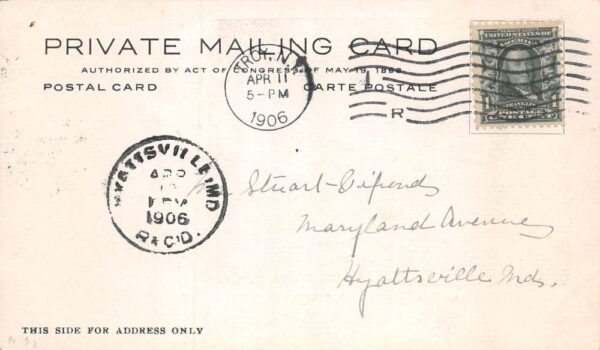 PRIVATE MAILING CARD
AUTHORIZED BY ACT OF CONGRESS OF MAY 19, 1898
POSTAL CARD
CARTE POSTALE
TROY, N.Y.
APR 11
5-PM
1906
1
R
UNITED STATES OF
AMERICA
FRANKLIN
POSTAGE
HYATTSVILLE, MD
APR
1906
REC'D.
Stuart
Maryland Avenue
Hyattsville Md.
THIS SIDE FOR ADDRESS ONLY